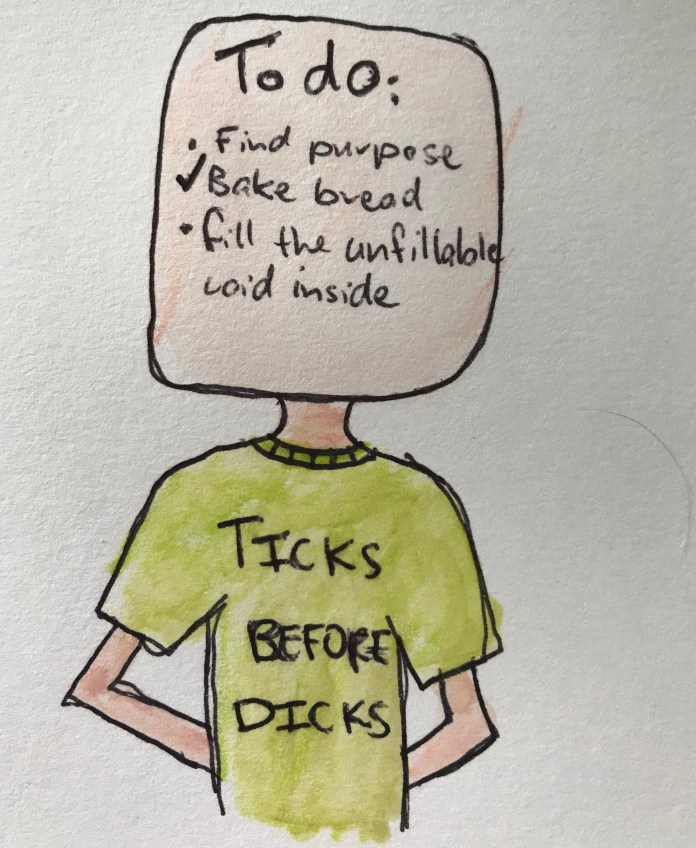 To do:
• Find purpose
✓ Bake bread
• fill the unfillable
void inside
TICKS
BEFORE
DICKS